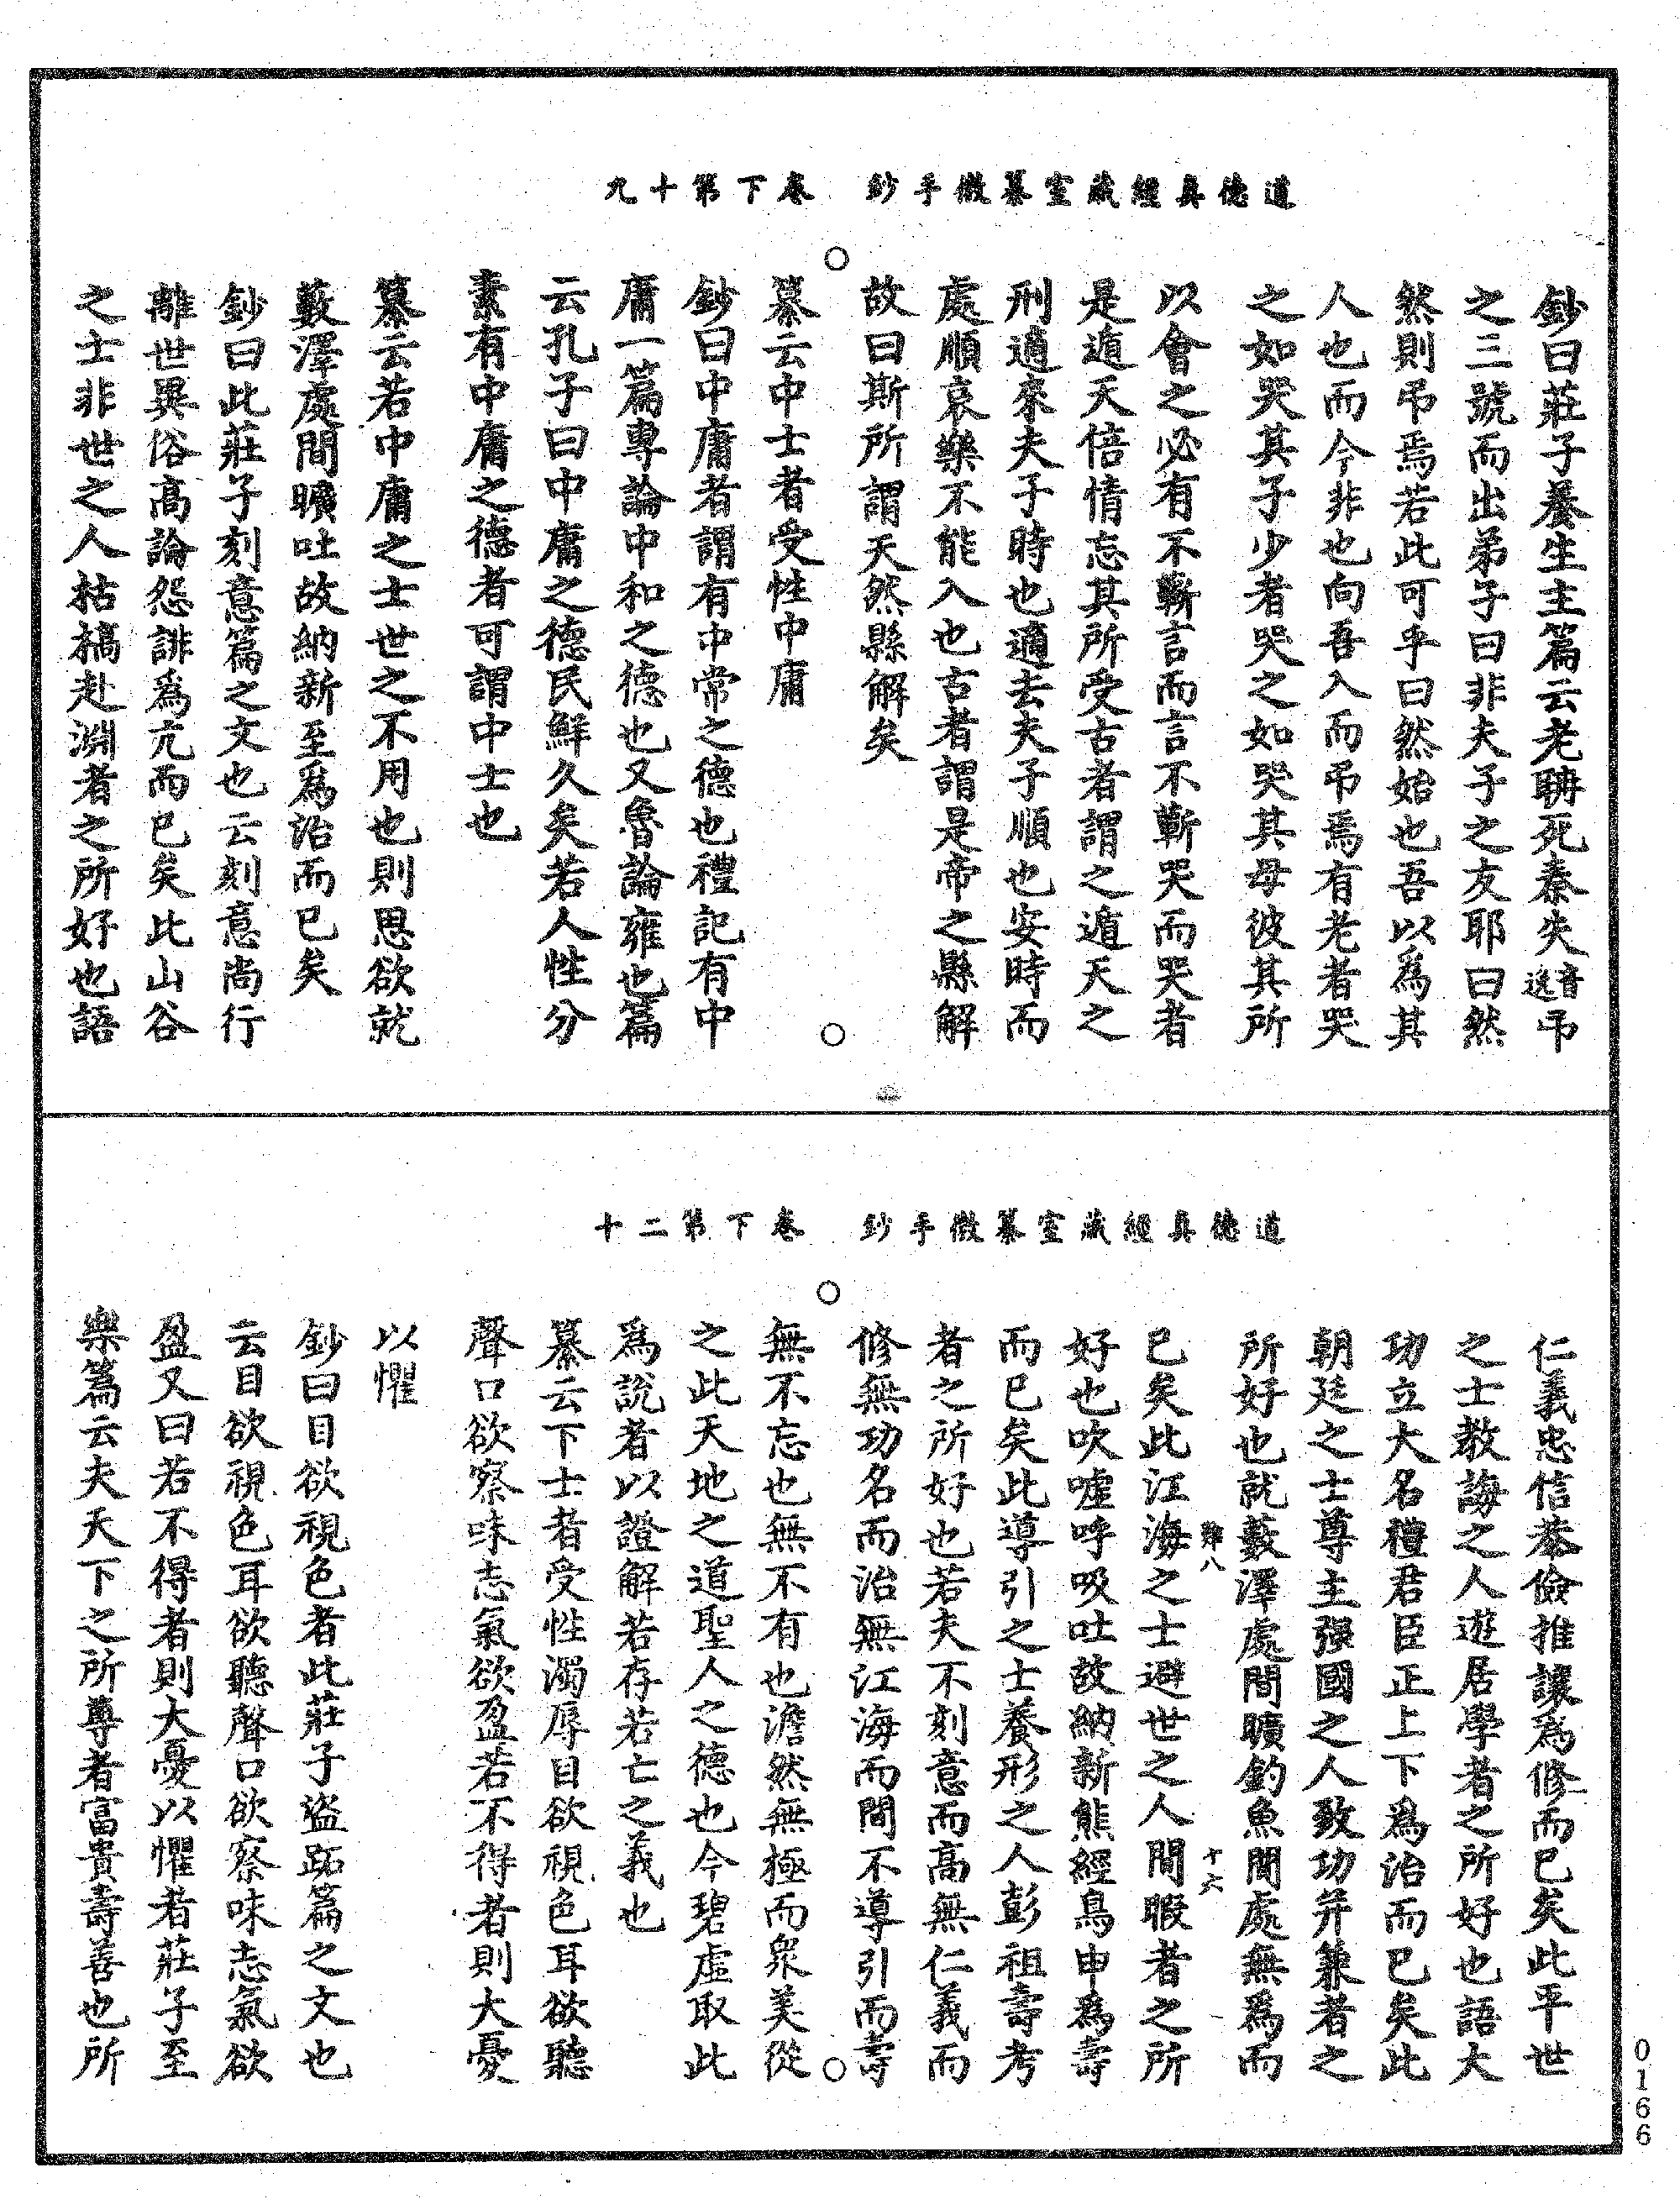 道德真經藏室纂微手鈔 卷下第十九
鈔曰莊子養生主篇云老聃死秦失音逸弔
之三號而出弟子曰非夫子之友耶曰然
然則弔焉若此可乎曰然始也吾以爲其
人也而今非也向吾入而弔焉有老者哭
之如哭其子少者哭之如哭其母彼其所
以會之必有不蘄言而言不蘄哭而哭者
是遁天倍情忘其所受古者謂之遁天之
刑適來夫子時也適去夫子順也安時而
處順哀樂不能入也古者謂是帝之縣解
故曰斯所謂天然縣解矣
纂云中士者受性中庸
鈔曰中庸者謂有中常之德也禮記有中
庸一篇專論中和之德也又魯論雍也篇
云孔子曰中庸之德民鮮久矣若人性分
素有中庸之德者可謂中士也
纂云若中庸之士世之不用也則思欲就
藪澤處間曠吐故納新至爲治而已矣
鈔曰此莊子刻意篇之文也云刻意尚行
離世異俗高論怨誹爲亢而已矣此山谷
之士非世之人枯槁赴淵者之所好也語
道德真經藏室纂微手鈔 卷下第二十
仁義忠信恭儉推讓爲修而已矣此平世
之士教誨之人遊居學者之所好也語大
功立大名禮君臣正上下爲治而已矣此
朝廷之士尊主強國之人致功并兼者之
所好也就藪澤處間曠釣魚閒處無爲而
已矣此江海之士避世之人間暇者之所
好也吹噓呼吸吐故納新熊經鳥申爲壽
而已矣此導引之士養形之人彭祖壽考
者之所好也若夫不刻意而高無仁義而
修無功名而治無江海而間不導引而壽
無不忘也無不有也澹然無極而衆美從
之此天地之道聖人之德也今碧虛取此
爲說者以證解若存若亡之義也
纂云下士者受性濁辱目欲視色耳欲聽
聲口欲察味志氣欲盈若不得者則大憂
以懼
鈔曰目欲視色者此莊子盜跖篇之文也
云目欲視色耳欲聽聲口欲察味志氣欲
盈又曰若不得者則大憂以懼者莊子至
樂篇云夫天下之所尊者富貴壽善也所
十六
0166